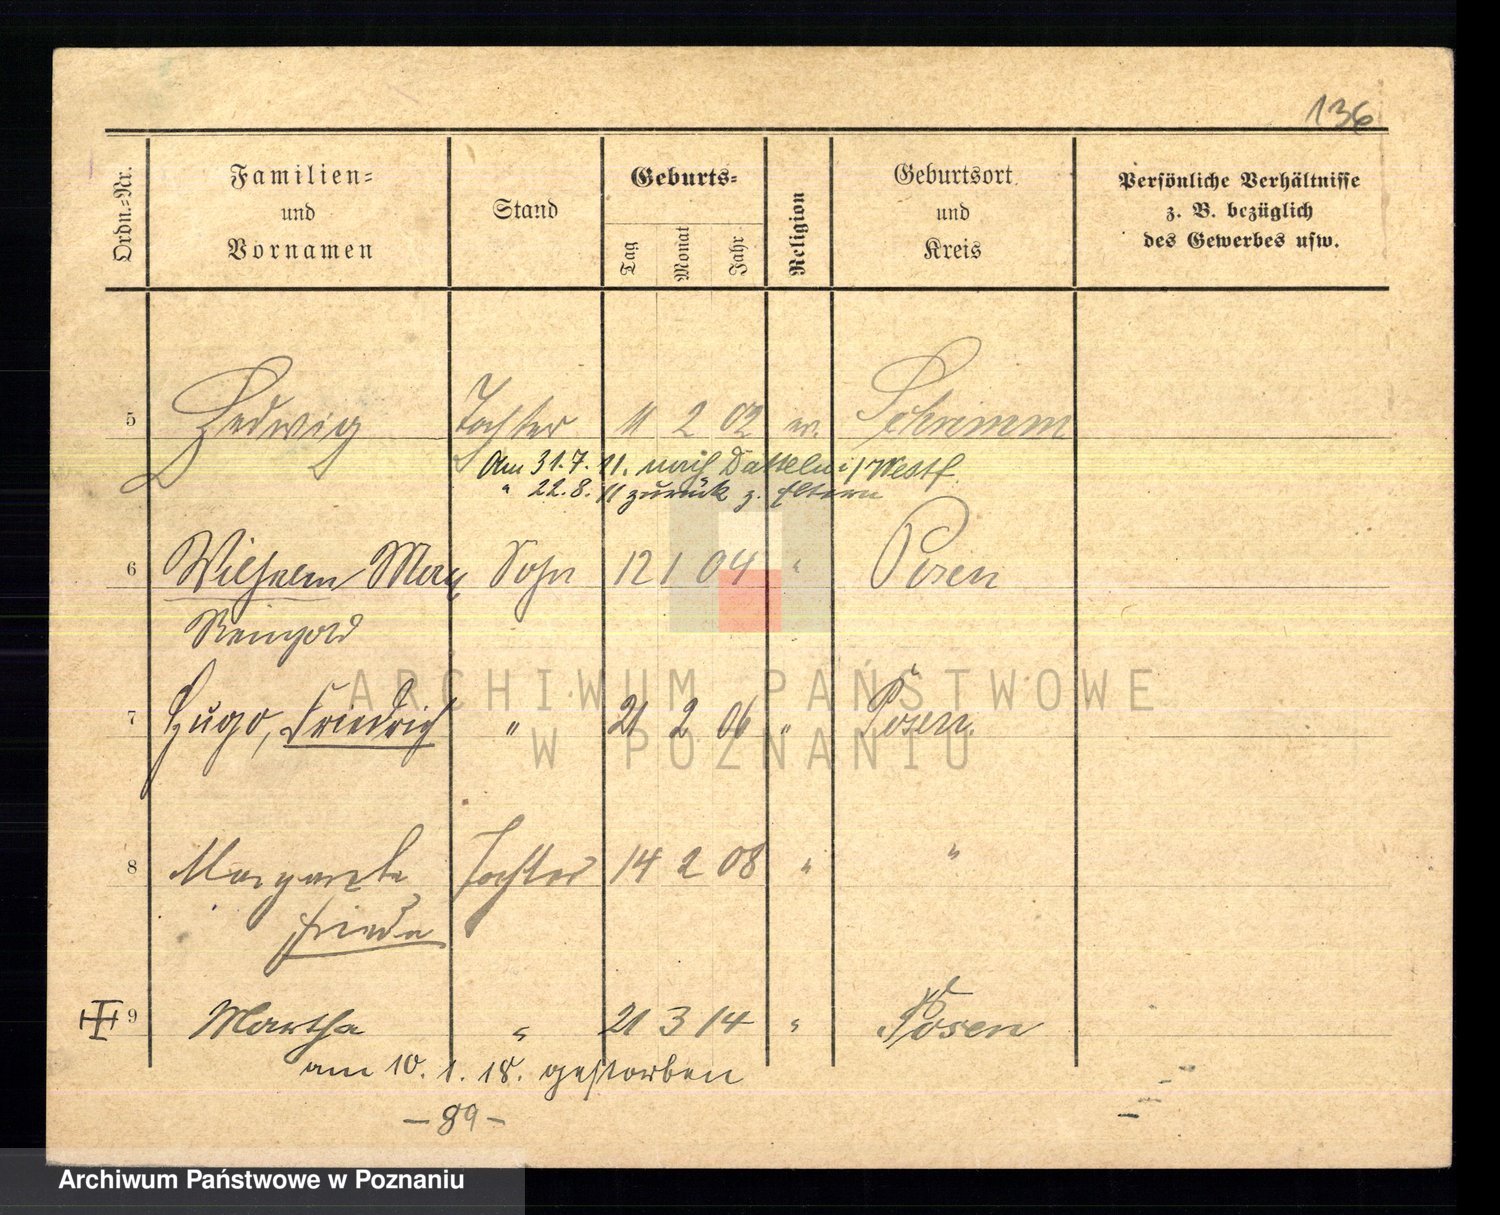 136
Ordn.-Nr.
Familien-
und
Vornamen
Stand
Geburts-
Tag
Monat
Jahr
Religion
Geburtsort
und
Kreis
Persönliche Verhältnisse
z. B. bezüglich
des Gewerbes usw.
5 Hedwig Tochter 11 2 02 ev. Schrimm
Am 31.7.11. nach Datteln i/Westf.
" 22.8.11 zurück z. Eltern
6 Wilhelm Max Sohn 12 1 04 " Posen
Reinhold
7 Hugo, Friedrich " 21 2 06 " Posen.
8 Margarete Tochter 14 2 08 " "
Frieda
9 Martha " 21 3 14 " Posen
am 10.1.18. gestorben
- 89 -
ARCHIWUM PAŃSTWOWE
W POZNANIU
Archiwum Państwowe w Poznaniu